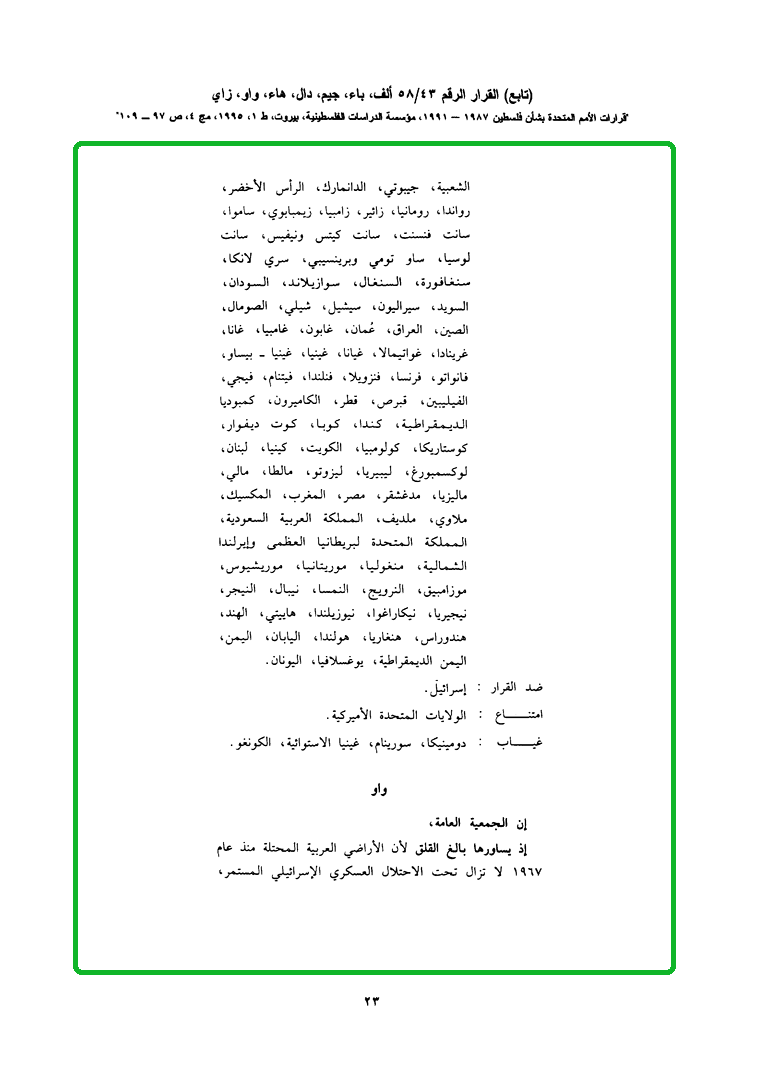 (تابع) القرار الرقم ٥٨/٤٣ ألف، باء، جيم، دال، هاء، واو، زاي
"قرارات الأمم المتحدة بشأن فلسطين ١٩٨٧ – ١٩٩١، مؤسسة الدراسات الفلسطينية، بيروت، ط ١، ١٩٩٥، مج ٤، ص ٩٧ – ١٠٩"
الشعبية، جيبوتي، الدانمارك، الرأس الأخضر،
رواندا، رومانيا، زائير، زامبيا، زيمبابوي، ساموا،
سانت فنسنت، سانت كيتس ونيفيس، سانت
لوسيا، ساو تومي وبرينسيبي، سري لانكا،
سنغافورة، السنغال، سوازيلاند، السودان،
السويد، سيراليون، سيشيل، شيلي، الصومال،
الصين، العراق، عُمان، غابون، غامبيا، غانا،
غرينادا، غواتيمالا، غيانا، غينيا، غينيا ـ بيساو،
فانواتو، فرنسا، فنزويلا، فنلندا، فيتنام، فيجي،
الفيليبين، قبرص، قطر، الكاميرون، كمبوديا
الديمقراطية، كندا، كوبا، كوت ديفوار،
كوستاريكا، كولومبيا، الكويت، كينيا، لبنان،
لوكسمبورغ، ليبيريا، ليزوتو، مالطا، مالي،
ماليزيا، مدغشقر، مصر، المغرب، المكسيك،
ملاوي، ملديف، المملكة العربية السعودية،
المملكة المتحدة لبريطانيا العظمى وإيرلندا
الشمالية، منغوليا، موريتانيا، موريشيوس،
موزامبيق، النرويج، النمسا، نيبال، النيجر،
نيجيريا، نيكاراغوا، نيوزيلندا، هاييتي، الهند،
هندوراس، هنغاريا، هولندا، اليابان، اليمن،
اليمن الديمقراطية، يوغسلافيا، اليونان.
ضد القرار : إسرائيل.
امتنـــاع : الولايات المتحدة الأميركية.
غيـــاب : دومينيكا، سورينام، غينيا الاستوائية، الكونغو.
واو
إن الجمعية العامة،
إذ يساورها بالغ القلق لأن الأراضي العربية المحتلة منذ عام
١٩٦٧ لا تزال تحت الاحتلال العسكري الإسرائيلي المستمر،
٢٣